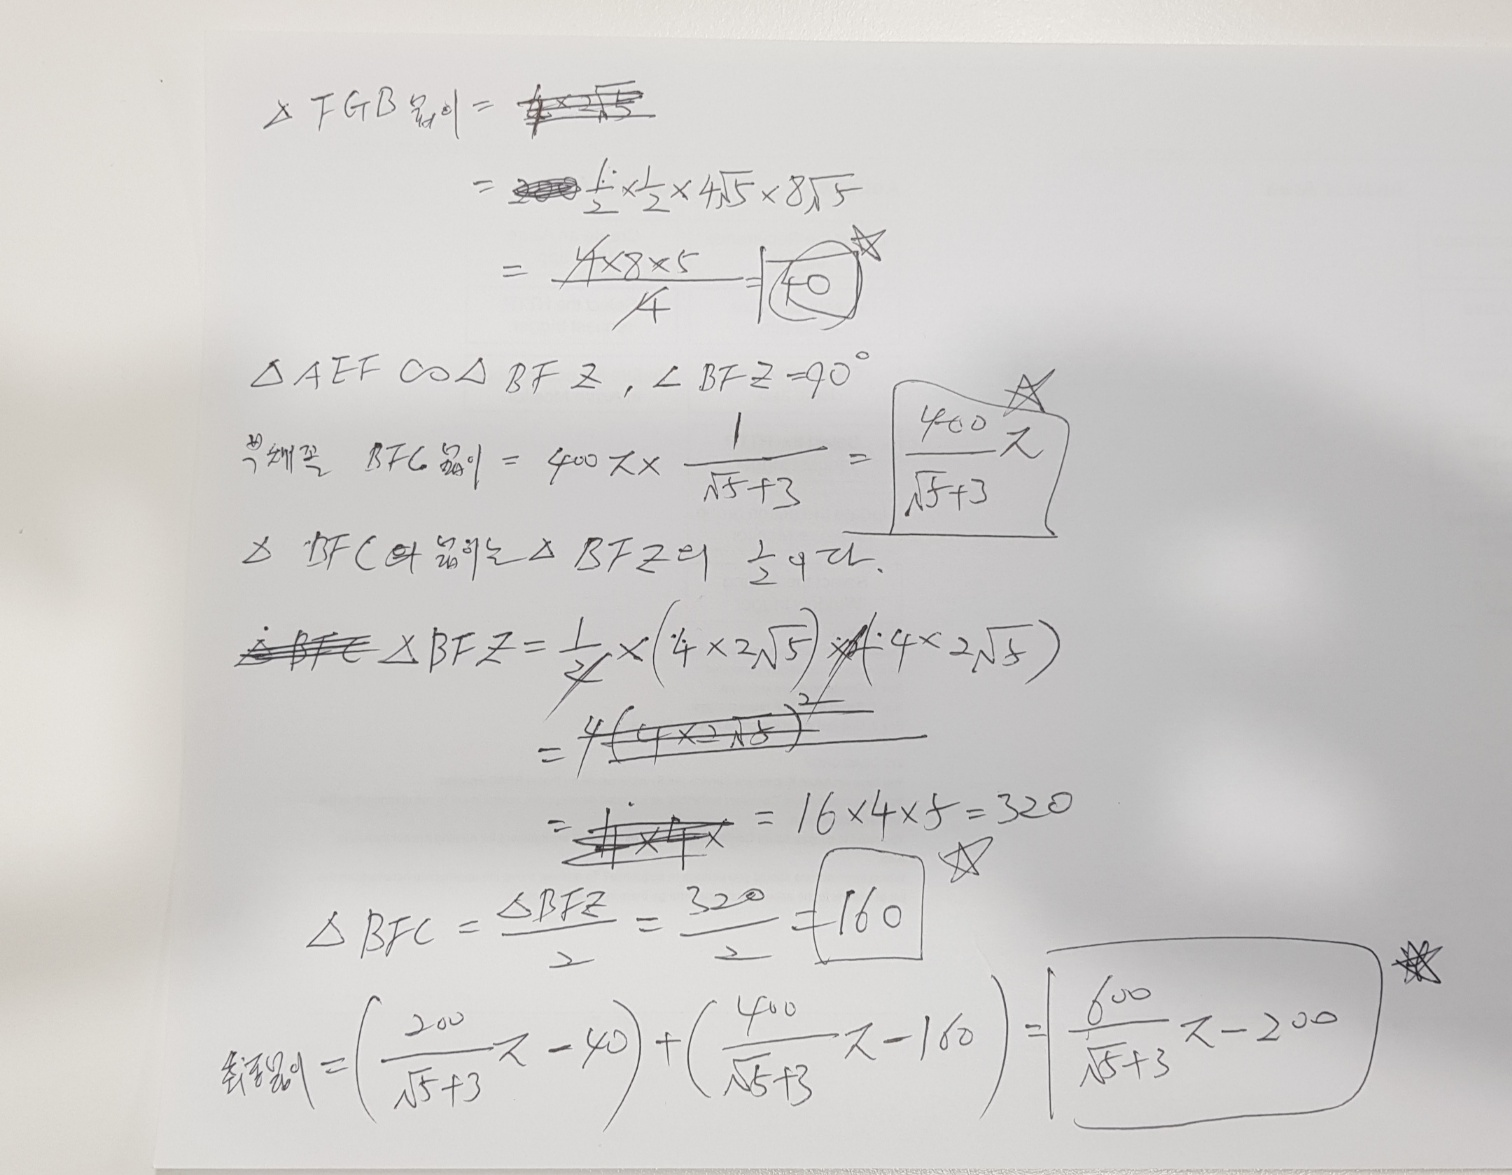 △FGB 넓이 = 4×2√5
= 200 1/2 × 1/2 × 4√5 × 8√5
= 4×8×5/4 = 40 ☆
△AEF ∽ △BFZ, ∠BFZ=90°
부채꼴 BFG 넓이 = 400π × 1/(√5+3) = 400/(√5+3) π ☆
△BFC의 넓이는 △BFZ의 1/2이다.
△BFC △BFZ = 1/2 × (4×2√5) × (4×2√5)
= 4(4×2√5)²
= 4×4× = 16×4×5=320
△BFC = △BFZ/2 = 320/2 = 160 ☆
최종넓이 = (200/(√5+3) π - 40) + (400/(√5+3) π - 160) = 600/(√5+3) π - 200 ☆